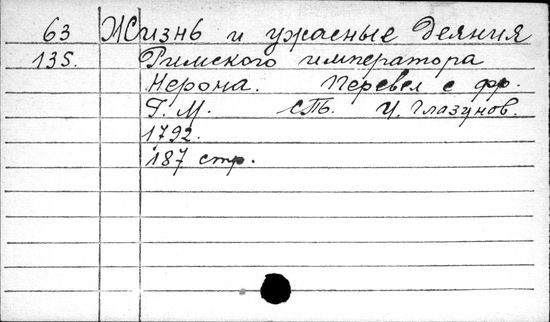 63 Жизнь и ужасные деяния
135. Римского императора
Нерона. Перевел с фр.
Г. М. СПб. И. Глазунов.
1792.
187 стр.